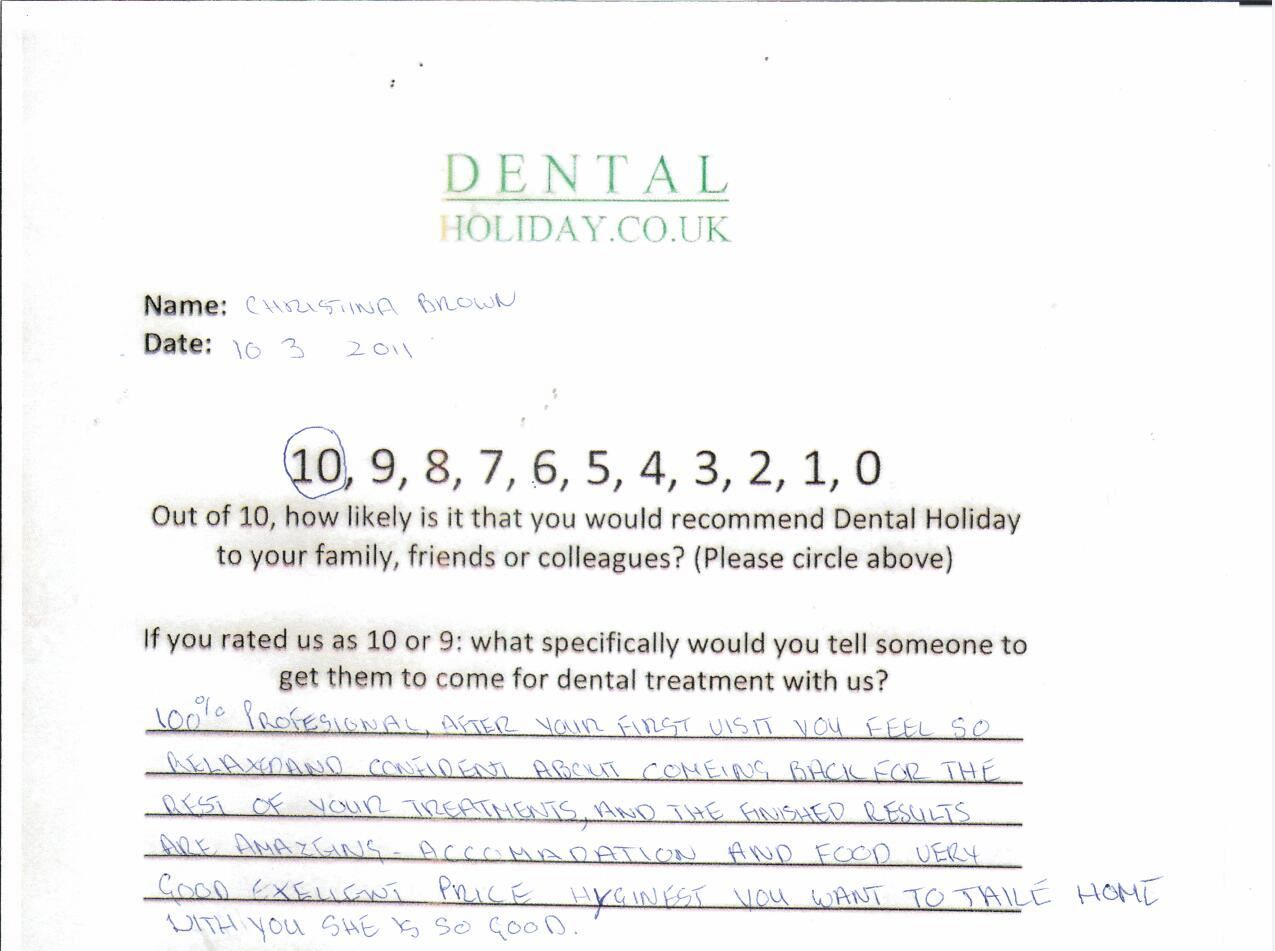 DENTAL
HOLIDAY.CO.UK
Name: CHRISTINA BROWN
Date: 10 3 2011
10, 9, 8, 7, 6, 5, 4, 3, 2, 1, 0
Out of 10, how likely is it that you would recommend Dental Holiday
to your family, friends or colleagues? (Please circle above)
If you rated us as 10 or 9: what specifically would you tell someone to
get them to come for dental treatment with us?
100% PROFESIONAL, AFTER YOUR FIRST VISIT YOU FEEL SO
RELAXEDAND CONFIDENT ABOUT COMEING BACK FOR THE
REST OF YOUR TREATMENTS, AND THE FINISHED RESULTS
ARE AMAZEING - ACCOMADATION AND FOOD VERY
GOOD EXELLENT PRICE HYGINEST YOU WANT TO TAKE HOME
WITH YOU SHE IS SO GOOD.